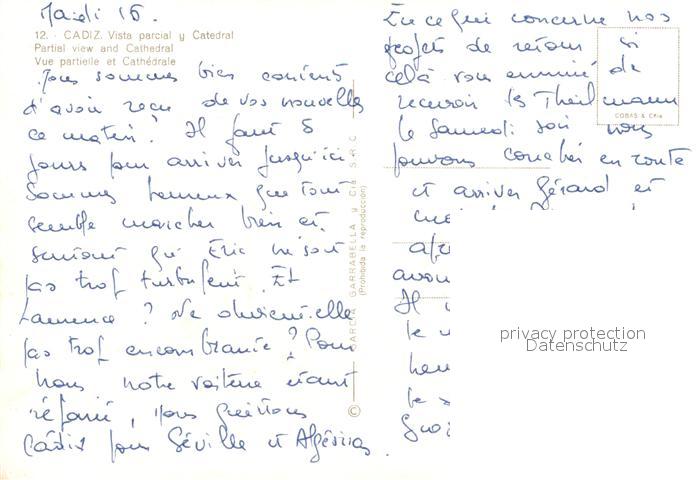 Mardi 16.
12. - CADIZ. Vista parcial y Catedral
Partial view and Cathedral
Vue partielle et Cathédrale
Nous sommes bien contents
d'avoir reçu de vos nouvelles
ce matin. Il faut 5
jours pour arriver jusqu'ici.
Sommes heureux que tout
semble marcher bien et
surtout qu'Eric ne soit
pas trop turbulent. Et
Laurence ? Ne devient-elle
pas trop encombrante ? Pour
nous notre voiture étant
réparée, nous quittons
Cádiz pour Séville et Algésiras.
© GARCIA GARRABELLA y Cía S.R.C.
(Prohibida la reproducción)
En ce qui concerne nos
projets de retour si
celà vous ennuie de
recevoir les Theilmann
le Samedi soir nous
pouvons coucher en route
et arriver Gérard et
avon
Il
le
le
COBAS & Cía
privacy protection
Datenschutz